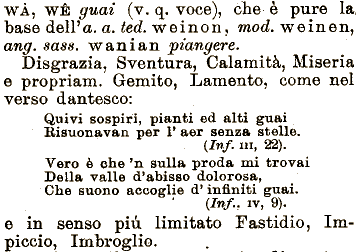 WÀ, WÊ guai (v. q. voce), che è pure la
base dell'a. a. ted. weinon, mod. weinen,
ang. sass. wanian piangere.
Disgrazia, Sventura, Calamità, Miseria
e propriam. Gemito, Lamento, come nel
verso dantesco:
Quivi sospiri, pianti ed alti guai
Risuonavan per l' aer senza stelle.
(Inf. III, 22).
Vero è che 'n sulla proda mi trovai
Della valle d'abisso dolorosa,
Che suono accoglie d' infiniti guai.
(Inf. IV, 9).
e in senso piú limitato Fastidio, Im-
piccio, Imbroglio.